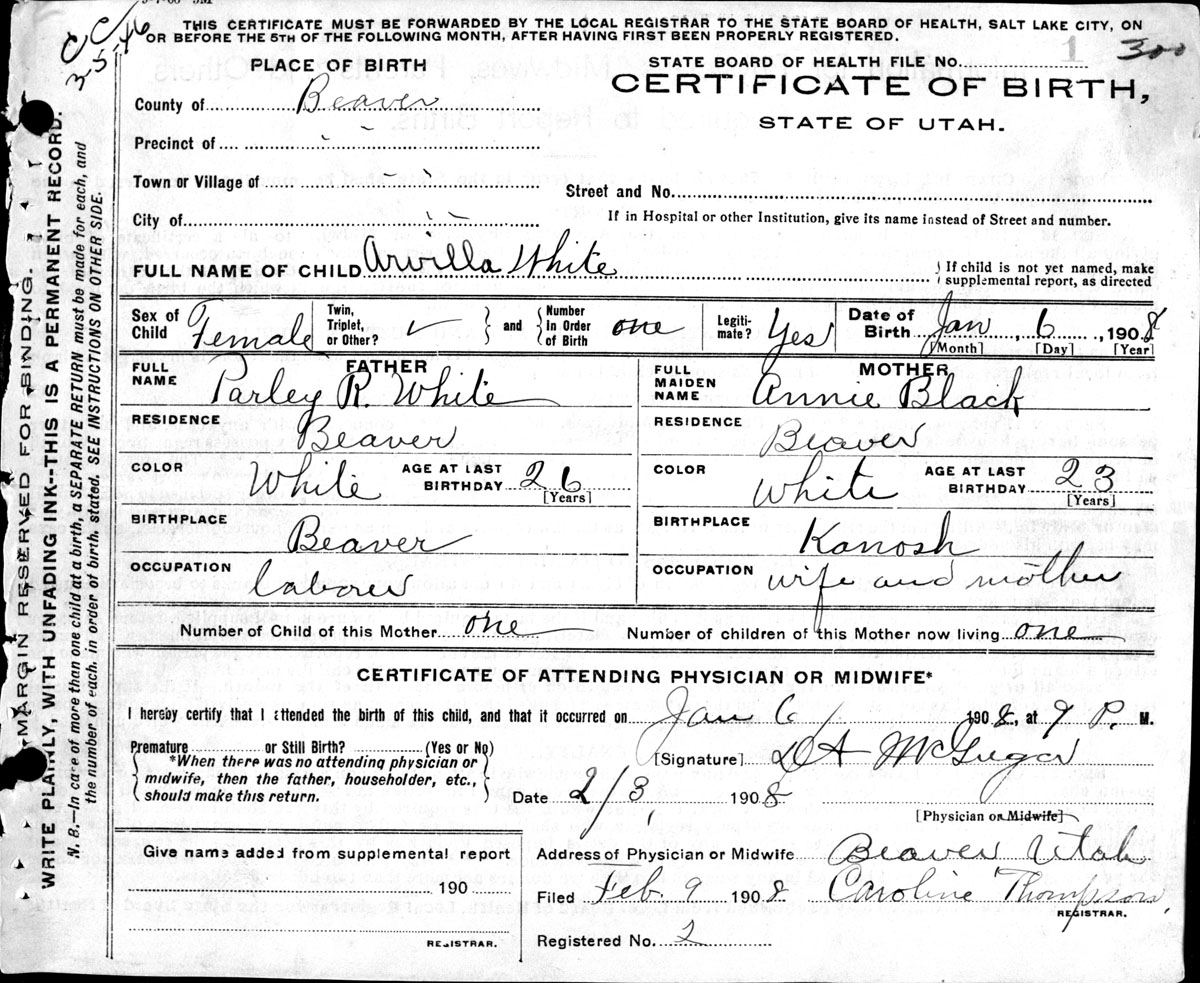 C C
3-5-46
THIS CERTIFICATE MUST BE FORWARDED BY THE LOCAL REGISTRAR TO THE STATE BOARD OF HEALTH, SALT LAKE CITY, ON
OR BEFORE THE 5TH OF THE FOLLOWING MONTH, AFTER HAVING FIRST BEEN PROPERLY REGISTERED.
PLACE OF BIRTH
STATE BOARD OF HEALTH FILE NO. 1 300
CERTIFICATE OF BIRTH,
STATE OF UTAH.
County of Beaver
Precinct of " "
Town or Village of " "
Street and No.
City of " "
If in Hospital or other Institution, give its name instead of Street and number.
FULL NAME OF CHILD Arvilla White
} If child is not yet named, make
supplemental report, as directed
Sex of Child Female
Twin, Triplet, or Other? ✓ } and { Number In Order of Birth one
Legitimate? Yes
Date of Birth Jan, 6, 1908
[Month] [Day] [Year]
FATHER
FULL NAME Parley R. White
RESIDENCE
Beaver
COLOR White AGE AT LAST BIRTHDAY 26
[Years]
BIRTHPLACE
Beaver
OCCUPATION
laborer
MOTHER
FULL MAIDEN NAME Annie Black
RESIDENCE
Beaver
COLOR White AGE AT LAST BIRTHDAY 23
[Years]
BIRTHPLACE
Kanosh
OCCUPATION wife and mother
Number of Child of this Mother one Number of children of this Mother now living one
CERTIFICATE OF ATTENDING PHYSICIAN OR MIDWIFE*
I hereby certify that I attended the birth of this child, and that it occurred on Jan 6, 1908, at 9 P. M.
Premature or Still Birth? (Yes or No)
{ *When there was no attending physician or
midwife, then the father, householder, etc.,
should make this return. }
[Signature] McGregor
Date 2/3, 1908
[Physician or Midwife]
Give name added from supplemental report
190
REGISTRAR.
Address of Physician or Midwife Beaver Utah
Filed Feb 9 1908 Caroline Thompson,
REGISTRAR.
Registered No. 2
MARGIN RESERVED FOR BINDING.
WRITE PLAINLY, WITH UNFADING INK--THIS IS A PERMANENT RECORD.
N. B.—In case of more than one child at a birth, a SEPARATE RETURN must be made for each, and
the number of each, in order of birth, stated. SEE INSTRUCTIONS ON OTHER SIDE.